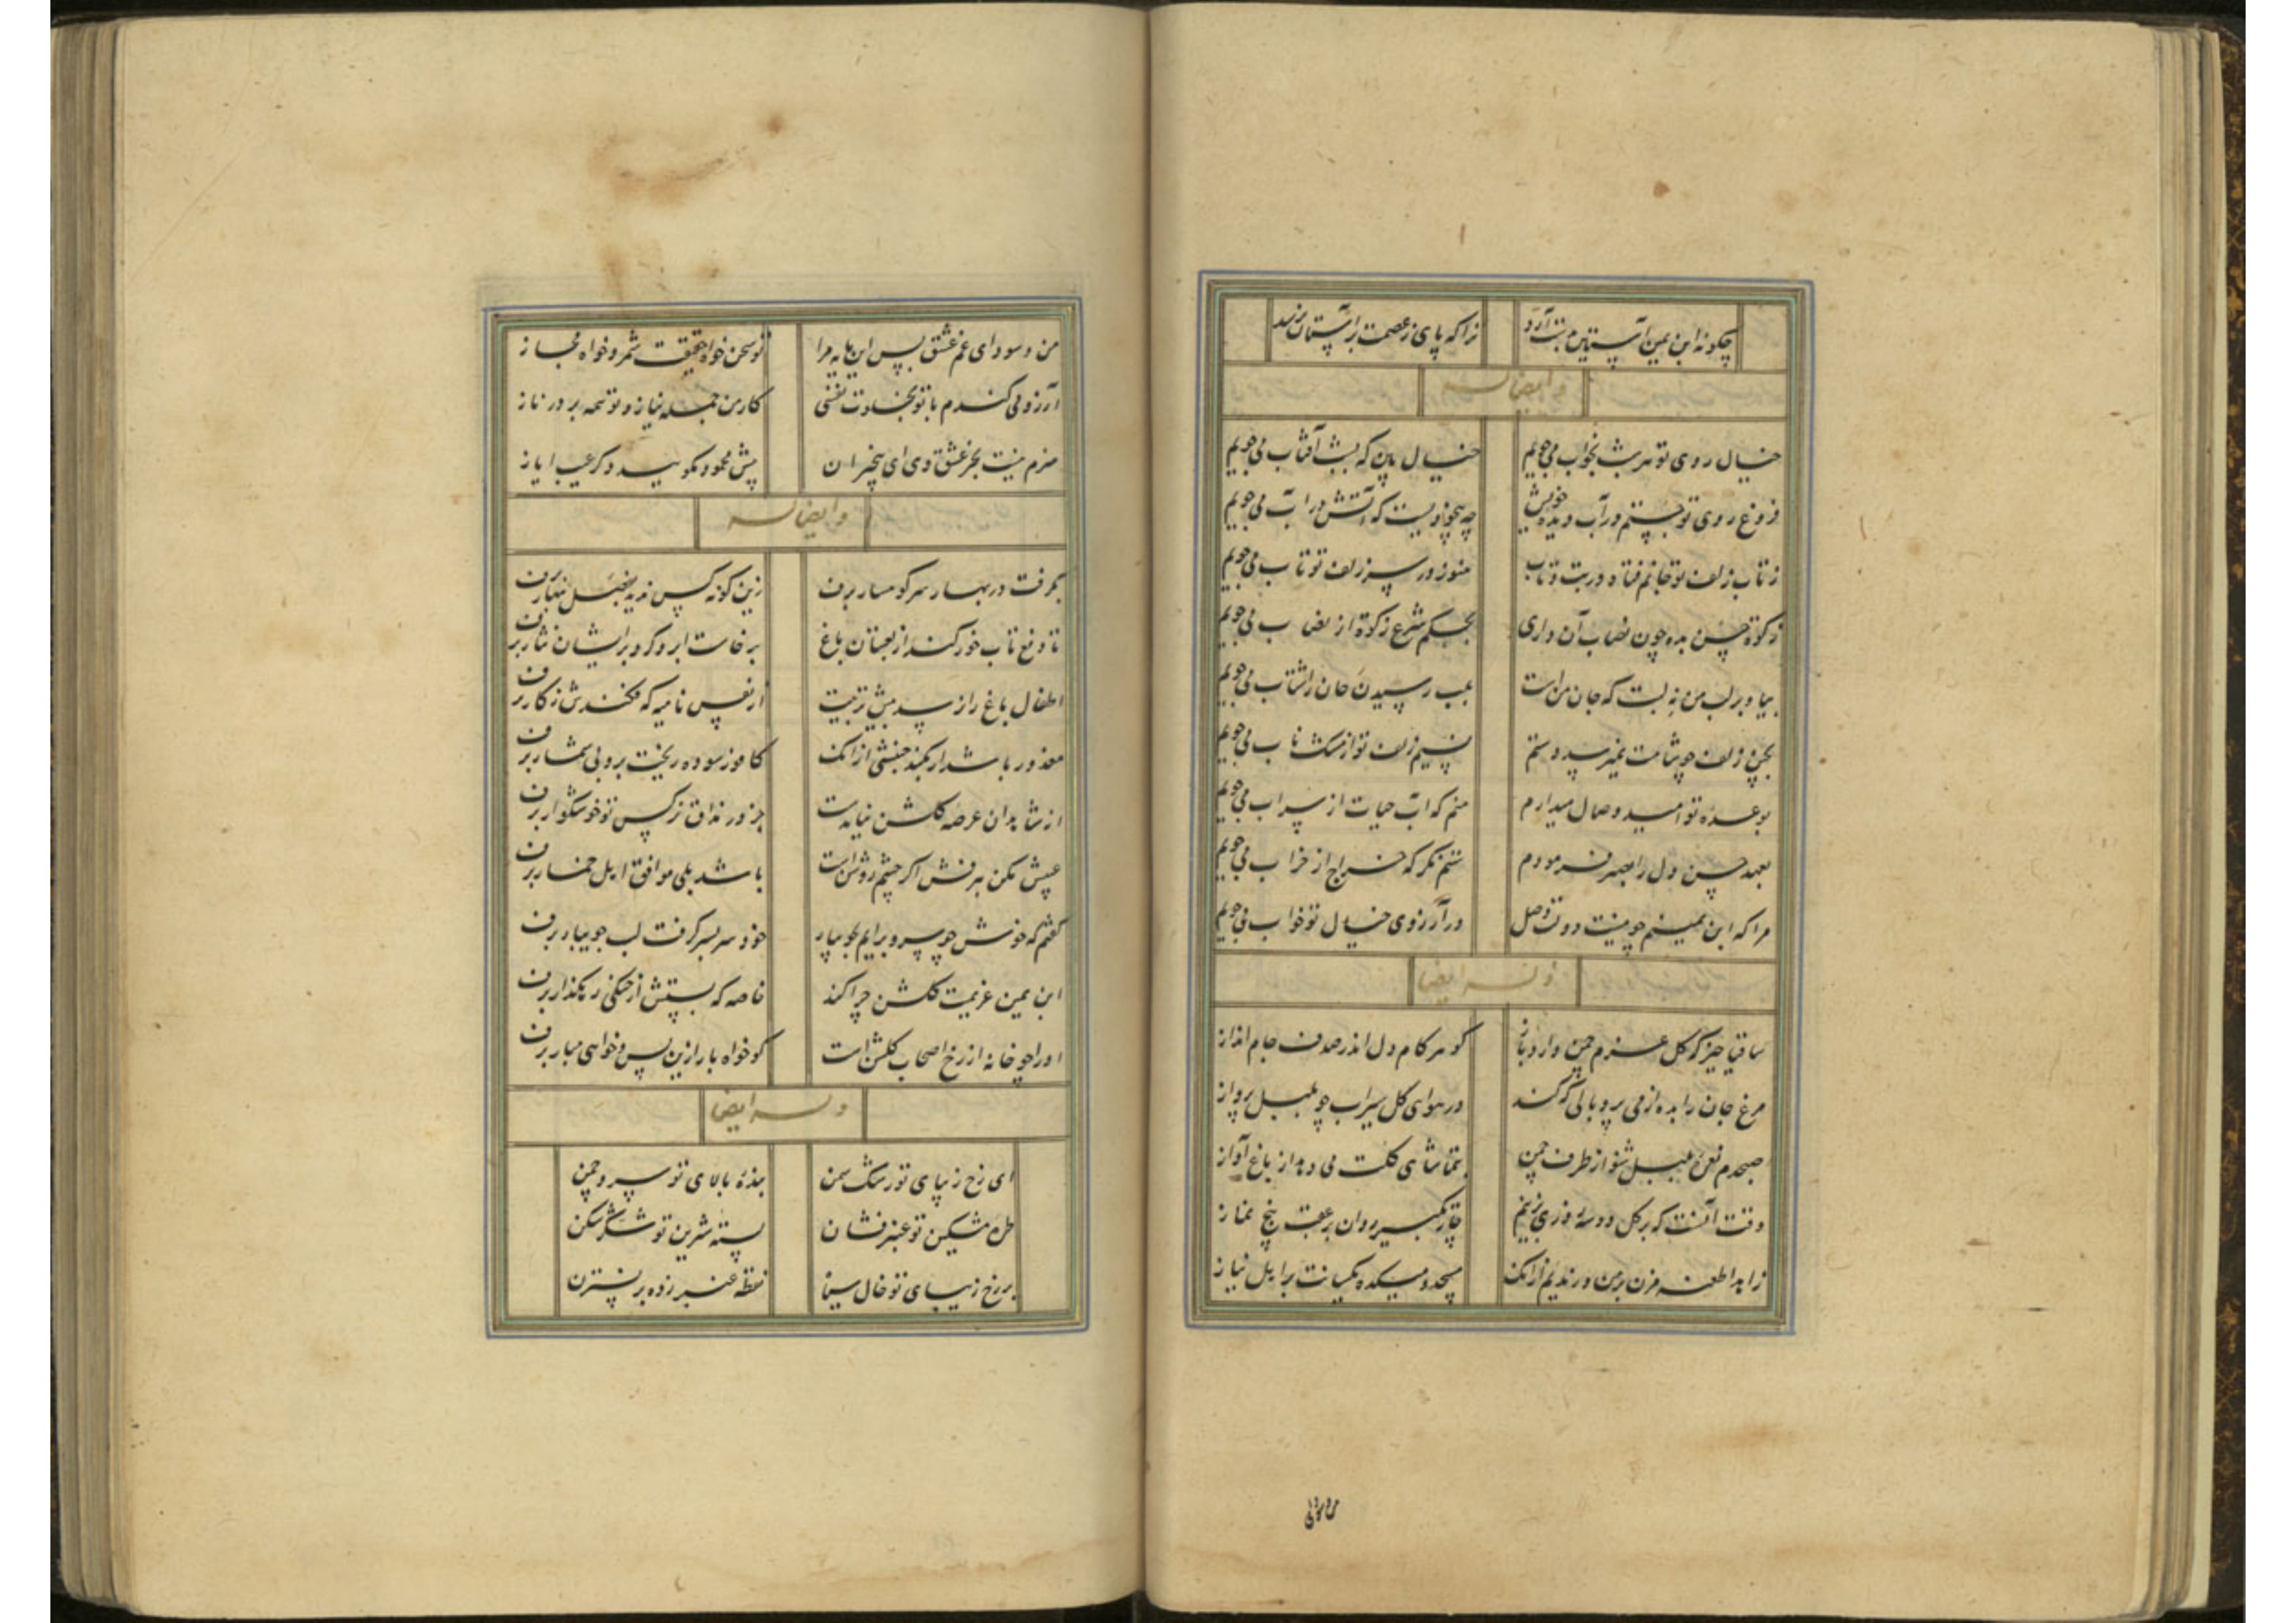 چگونه ابن یمین آستین بدست آرد زانکه پای ز عصمت بر آستان نرسد
و ایضا له
خیال روی تو هر شب بخواب می‌جویم خیال بین که بشب آفتاب می‌جویم
فروغ روی تو جستم در آب دیده خویش چه بیخودیست که آتش در آب می‌جویم
ز تاب زلف تو جانم فتاده در تب و تاب هنوز در سر زلف تو تاب می‌جویم
زکوة حسن بده چون نصاب آن داری بحکم شرع زکوة از نصاب می‌جویم
بیا و بر لب من نه لبت که جان من است بلب رسیدن جان را شتاب می‌جویم
بچین زلف چو شامت نمیرسد دستم نسیم زلف تو از مشک ناب می‌جویم
بوعده تو امید وصال میدارم منم که آب حیات از سراب می‌جویم
بعهد حسن دل را بصبر فرمودم ستم نگر که خراج از خراب می‌جویم
مرا که ابن یمینم چو نیست دولت وصل در آرزوی خیال تو خواب می‌جویم
و له ایضا
ساقیا خیز که گل عزم چمن دارد باز گوهر کام دل اندر صدف جام انداز
مرغ جان را بده از می پر و بالی که کند در هوای گل سیراب چو بلبل پرواز
صبحدم نعره بلبل شنو از طرف چمن بتماشای گلت می دهد از باغ آواز
وقت آنست که بر گل دو سه روزی بزنیم چار تکبیر روان بر عقب پنج نماز
زاهدا طعنه مزن بر من و رندیم از آنک مسجد و میکده یکسانست بر اهل نیاز
من و سودای غم عشق بس این مایه مرا تو سخن خواه حقیقت شمر و خواه مجاز
آرزو می کندم با تو بخلوت نفسی کار من جمله نیاز و تو همه بر در ناز
هنرم نیست بجز عشق وی ای بیخبران پیش محمود مگویید دگر عیب ایاز
و ایضا له
بگرفت در بهار سر کوهسار برف زین گونه کس ندید بخیل بهار برف
تا دفع تاب خور کند از بستان باغ برخاست ابر و کرد بر ایشان نثار برف
اطفال باغ را ز سد پیش تربیت از نفس نامیه که فکندش ز کار برف
معذور باشد ار نکند جنبشی از آنک کافور سوده ریخت برو بی شمار برف
از شاهدان عرصه گلشن نیایدت جز در مذاق نرگس تو خوشگوار برف
عیبش مکن به برفش اگر چشم روشن است باشد بلی موافق اهل خمار برف
گفتم که خوش چو سرو برآیم بجویبار خود سر بسر گرفت لب جویبار برف
ابن یمین عزیمت گلشن چرا کند خاصه که بستش از خنکی رهگذار برف
او را چو خانه از رخ اصحاب گلشن است گو خواه بار ازین پس و خواهی مبار برف
و له ایضا
ای رخ زیبای تو رشک سمن بنده بالای تو سرو چمن
طره مشکین تو عنبر فشان پسته شیرین تو شکر شکن
بر رخ زیبای تو خال سیاه نقطه عنبر زده بر نسترن